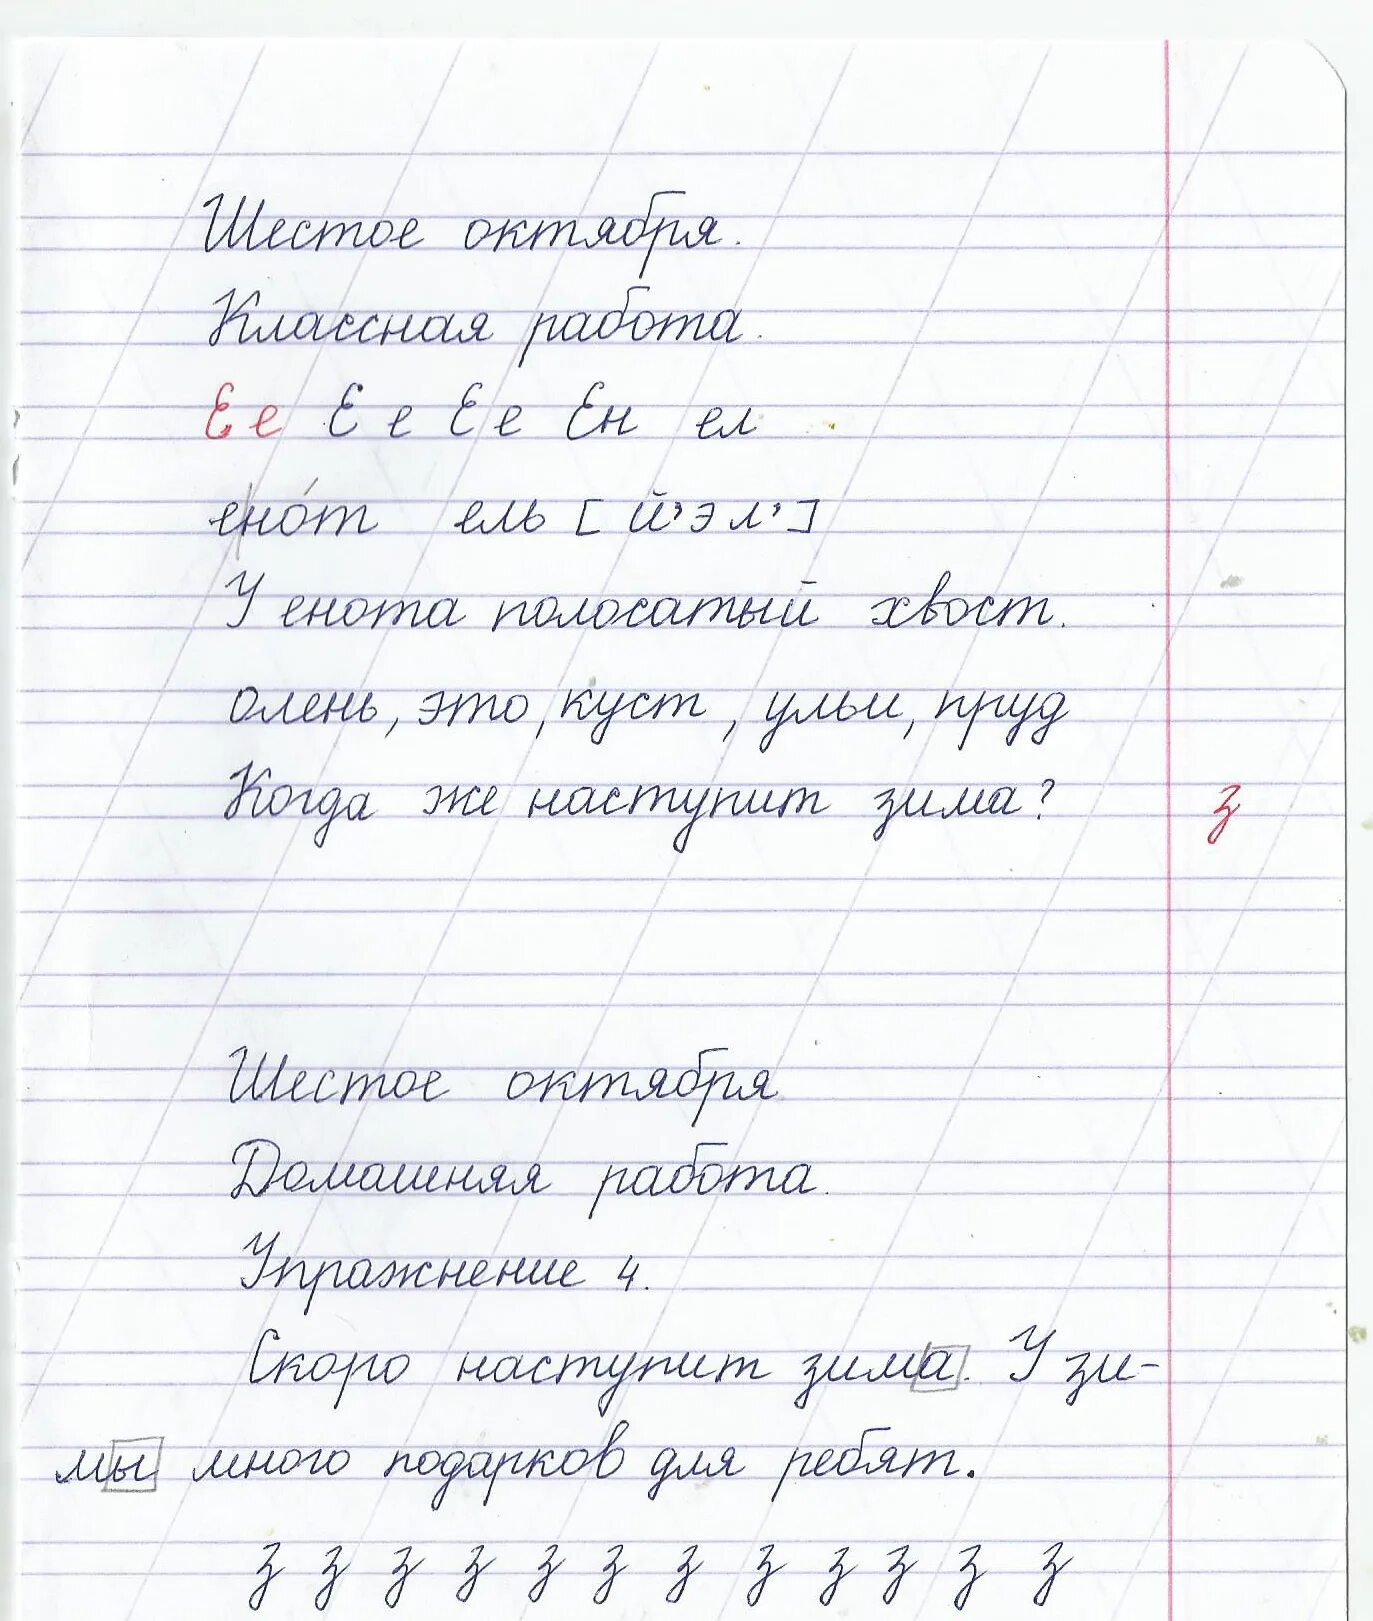 Шестое октября.
Классная работа.
Ее Ее Ее Ен ел
ено́т ель [й'эл']
У енота полосатый хвост.
олень, это, куст, ульи, пруд
Когда же наступит зима? з
Шестое октября
Домашняя работа.
Упражнение 4.
Скоро наступит зима. У зи-
мы много подарков для ребят.
з з з з з з з з з з з з